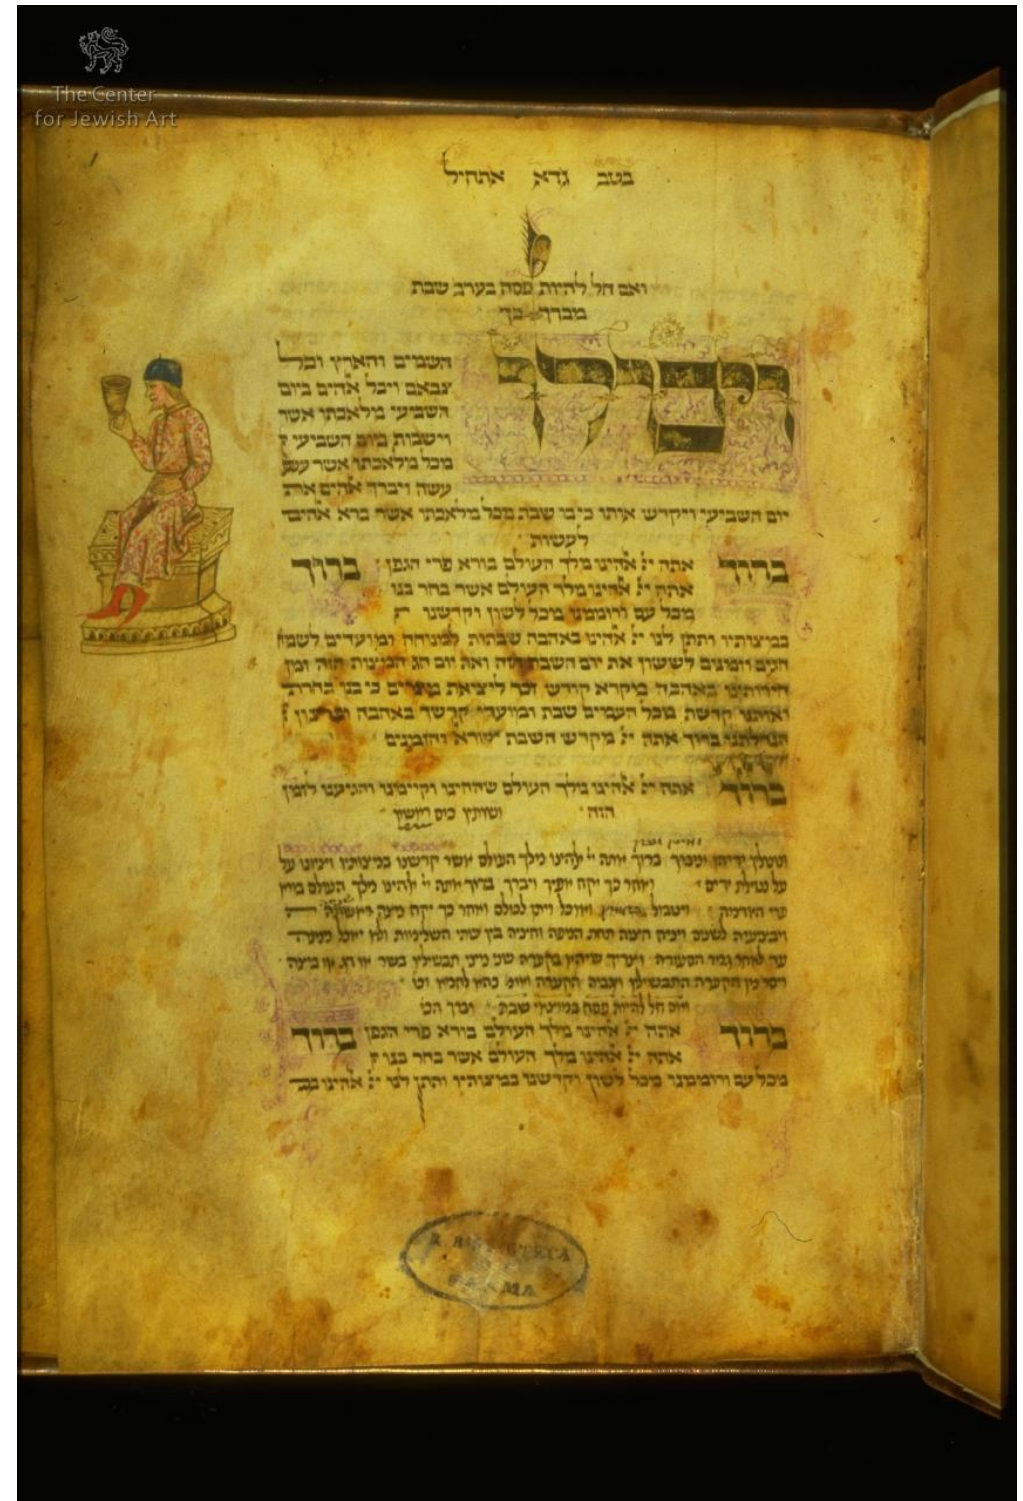 The Center
for Jewish Art
בטב גדא אתחיל
ואם חל להיות פסח בערב שבת
מברך כך
ויכלו
השמים והארץ וכל
צבאם ויכל אהים ביום
השביעי מלאכתו אשר
וישבות ביום השביעי
מכל מלאכתו אשר עשה
עשה ויברך אהים את
יום השביעי ויקדש אותו כי בו שבת מכל מלאכתו אשר ברא אהים
לעשות
ברוך אתה יי אהינו מלך העולם בורא פרי הגפן ברוך
אתה יי אהינו מלך העולם אשר בחר בנו
מכל עם ורוממנו מכל לשון וקדשנו
במצותיו ותתן לנו יי אהינו באהבה שבתות למנוחה ומועדים לשמח
חגים וזמנים לששון את יום השבת הזה ואת יום חג המצות הזה זמן
חירותינו באהבה מקרא קודש זכר ליציאת מצרים כי בנו בחרת
ואותנו קדשת מכל העמים שבת ומועדי קדשך באהבה וברצון
הנחלתנו ברוך אתה יי מקדש השבת ישרא והזמנים
ברוך אתה יי אהינו מלך העולם שהחיינו וקיימנו והגיענו לזמן
הזה ושותין כוס ראשון
ונוטלין ידיהן ומברך ברוך אתה יי אלהינו מלך העולם אשר קדשנו במצותיו וציונו על
על נטילת ידים ואחר כך יקח ויברך ברוך אתה יי אלהינו מלך העולם בורא
פרי האדמה ויטבול ויאכל ויתן לכולם ואחר כך יקח מצה
ויבצענה לשנים ויניח חציה תחת המפה וחציה בין שתי השלימות ולא יאכל
עד לאחר גמר הסעודה וצריך שיהיו בקערה שני מיני תבשילין בשר
ויסר מן הקערה התבשילין ויגביה הקערה
ואם חל להיות פסח במוצאי שבת יברך
ברוך אתה יי אהינו מלך העולם בורא פרי הגפן ברוך
אתה יי אהינו מלך העולם אשר בחר בנו
מכל עם ורוממנו מכל לשון וקדשנו במצותיו ותתן לנו יי אהינו
PARMA